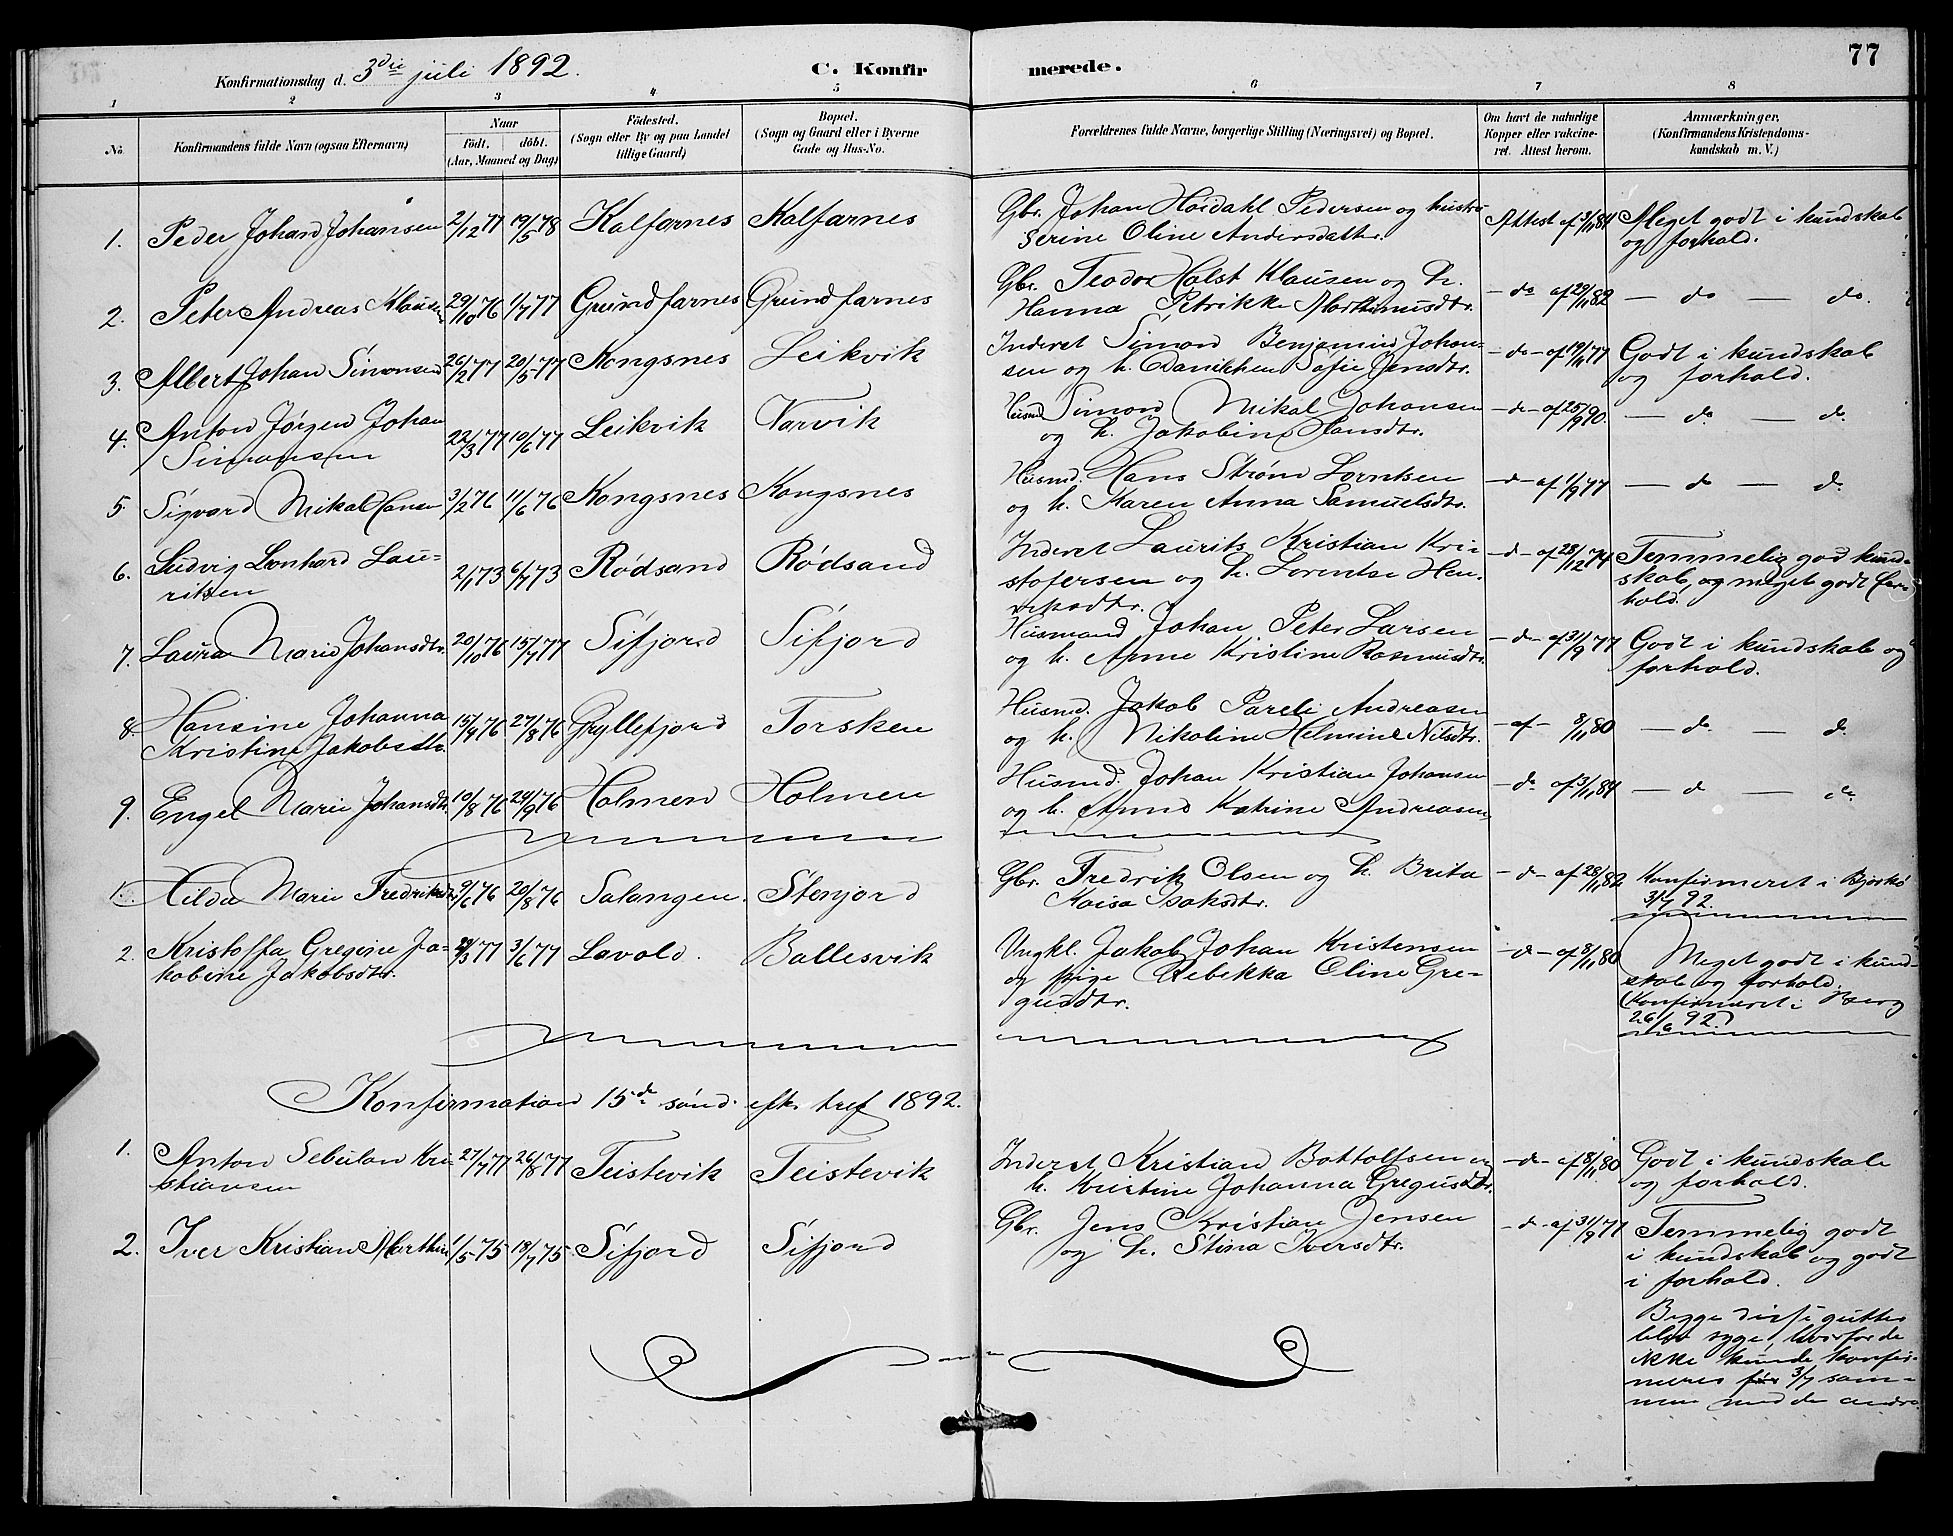 77
Konfirmationsdag d. 3die juli 1892. C. Konfirmerede.
1 2 3 4 5 6 7 8
No. Konfirmandens fulde Navn (ogsaa Efternavn) Naar født. døbt. (Aar, Maaned og Dag) Fødested. (Sogn eller By og paa Landet tillige Gaard) Bopæl. (Sogn og Gaard eller i Byerne Gade og Hus-No. Forældrenes fulde Navne, borgerlige Stilling (Næringsvei) og Bopæl. Om havt de naturlige Kopper eller vakcineret. Attest herom. Anmærkninger. (Konfirmandens Kristendomskundskab m. V.)
1. Peder Johan Johansen 2/12 77 19/5 78 Kalfarnes Kalfarnes Gbr. Johan Høidahl Pedersen og hustru Attest af 3/11 84 Meget godt i kundskab
Serine Oline Andersdatter. og forhold.
2. Peter Andreas Klausen 29/10 76 1/7 77 Grundfarnes Grundfarnes Gbr. Teodor Holst Klausen og h. — do af 29/11 82 — do — do.
Hanna Petrikke Marthinusdtr.
3. Albert Johan Simonsen 26/2 77 20/5 77 Kongsnes Leikvik Inderst Simon Benjamin Johan- — do — af 19/11 77 Godt i kundskab
sen og h. Danikken Sofie Jensdtr. og forhold.
4. Anton Jørgen Johan 22/3 77 10/6 77 Leikvik Varvik Husmd Simon Mikal Johansen — d — af 25/9 90. — do — do
Simonsen og h. Jakobine Hansdtr.
5. Sigvard Mikal Hansen 3/2 76 11/6 76 Kongsnes Kongsnes Husmd. Hans Strøm Lorntsen — d — af 1/9 77 — do — do
og h. Karen Anna Samuelsdtr.
6. Ludvig Leonhard Lau- 2/1 73 6/7 73 Rødsand Rødsand Inderst Laurits Kristian Kri- — d — af 28/12 74 Temmelig god kund-
ritsen stofersen og h. Lorentse Hen- skab, og meget godt for-
riksdtr. hold.
7. Laura Marie Johansdtr. 20/10 76 15/7 77 Sifjord Sifjord Husmand Johan Peter Larsen — d — af 31/9 77 Godt i kundskab og
og h. Anne Kristine Rasmusdtr. forhold.
8. Hansine Johanna 15/4 76 27/8 76 Gryllefjord Torsken Husmd. Jakob Pareli Andreasen — af — 8/11 80 — do — d
Kristine Jakobsdtr. og h. Nikoline Helmine Nilsdtr.
9. Engel Marie Johansdtr. 10/8 76 24/9 76 Holmen Holmen Husmd. Johan Kristian Johansen — do af 3/11 84 — d — do
og h. Anna Katrine Andreasen
1. Hilda Marie Fredriksdtr. 9/6 76 20/8 76 Salangen. Stenjord Gbr. Fredrik Olsen og h. Brita — d — af 28/11 82 Konfirmeret i Bjarkø
Kaisa Isaksdtr. 3/7 92.
2. Kristoffa Gregine Ja- 29/3 77 3/6 77 Lavold. Ballesvik Ungkl. Jakob Johan Kristensen — d — af 8/11 80 Meget godt i kund-
kobine Jakobsdtr. og pige Rebekka Oline Gre- skab og forhold.
gusdtr. (Konfirmeret i Berg
26/6 92.)
Konfirmation 15de sønd. eft. tref 1892.
1. Anton Sebulon Kri- 27/7 77 26/8 77 Teistevik Teistevik Inderst Kristian Bottolfsen og — d — af 8/11 80 Godt i kundskab
stiansen h. Kristine Johanna Gregusdtr. og forhold.
2. Iver Kristian Marthin 1/5 75 18/7 75. Sifjord Sifjord Gbr. Jens Kristian Jensen — d — af 31/9 77 Temmelig godt
og h. Stina Iversdtr. i kundskab og godt
i forhold.
Begge disse gutter
blev syge, hvorfor de
ikke kunde konfir-
meres før 3/7 sam-
men med de andre